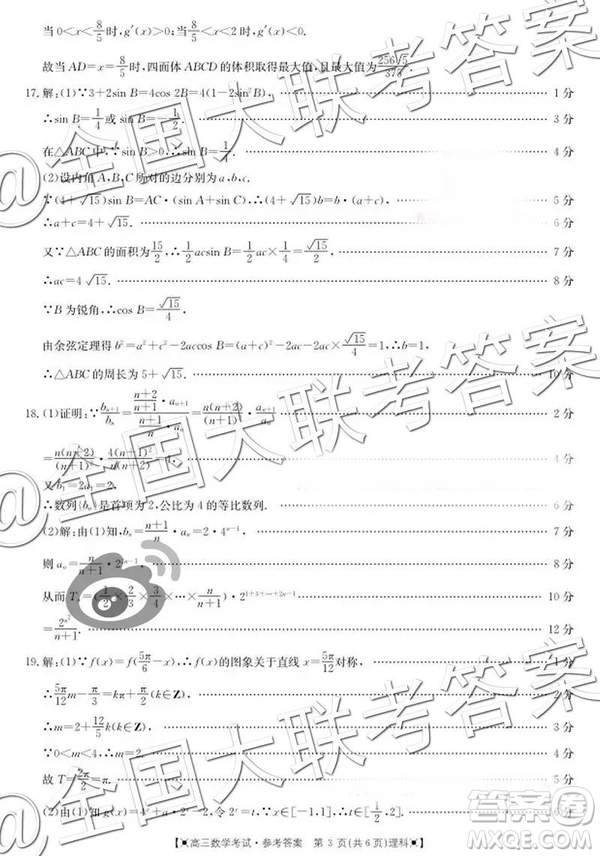 当0<x<8/5时,g′(x)>0;当8/5<x<2时,g′(x)<0.
故当AD=x=8/5时,四面体ABCD的体积取得最大值,且最大值为
17.解:(1)∵3+2sin B=4cos 2B=4(1-2sin²B), 1分
∴sin B=1/4或sin B=- 3分
在△ABC中,∵sin B>0,∴sin B=1/4. 4分
(2)设内角A,B,C所对的边分别为a,b,c.
∵(4+√15)sin B=AC·(sin A+sin C),∴(4+√15)b=b·(a+c), 5分
∴a+c=4+√15. 6分
又∵△ABC的面积为15/2,∴1/2 acsin B=1/2 ac×1/4=√15/2, 7分
∴ac=4√15. 8分
∵B为锐角,∴cos B=√15/4.
由余弦定理得b²=a²+c²-2accos B=(a+c)²-2ac-2ac×√15/4=1,∴b=1,
∴△ABC的周长为5+√15. 10分
18.(1)证明:∵b_{n+1}/b_n=((n+2)/(n+1)·a_{n+1})/((n+1)/n·a_n)=n(n+2)/(n+1)²·a_{n+1}/a_n 2分
=n(n+2)/(n+1)²·4(n+1)²/n(n+2)=4, 4分
又b₁=2a₁=2,
∴数列{b_n}是首项为2,公比为4的等比数列. 6分
(2)解:由(1)知,b_n=(n+1)/n·a_n=2·4^{n-1}, 7分
则a_n=n/(n+1)·2^{2n-1}. 8分
从而T_n=(1/2×2/3×3/4×…×n/(n+1))·2^{1+3+…+2n-1} 10分
=2^{n²}/(n+1). 12分
19.解:(1)∵f(x)=f(5π/6-x),∴f(x)的图象关于直线x=5π/12对称, 1分
∴5π/12 m-π/3=kπ+π/2(k∈Z), 2分
∴m=2+12/5 k(k∈Z). 3分
∵0<m<4,∴m=2, 4分
故T=2π/2=π. 5分
(2)由(1)知g(x)=4^x+2^x-2,令2^x=t,∵x∈[-1,1],∴t∈[1/2,2], 6分
高三数学考试·参考答案 第3页(共6页)理科
@全国大联考答案
@全国大联考答案
@全国大联考答案
答案圈